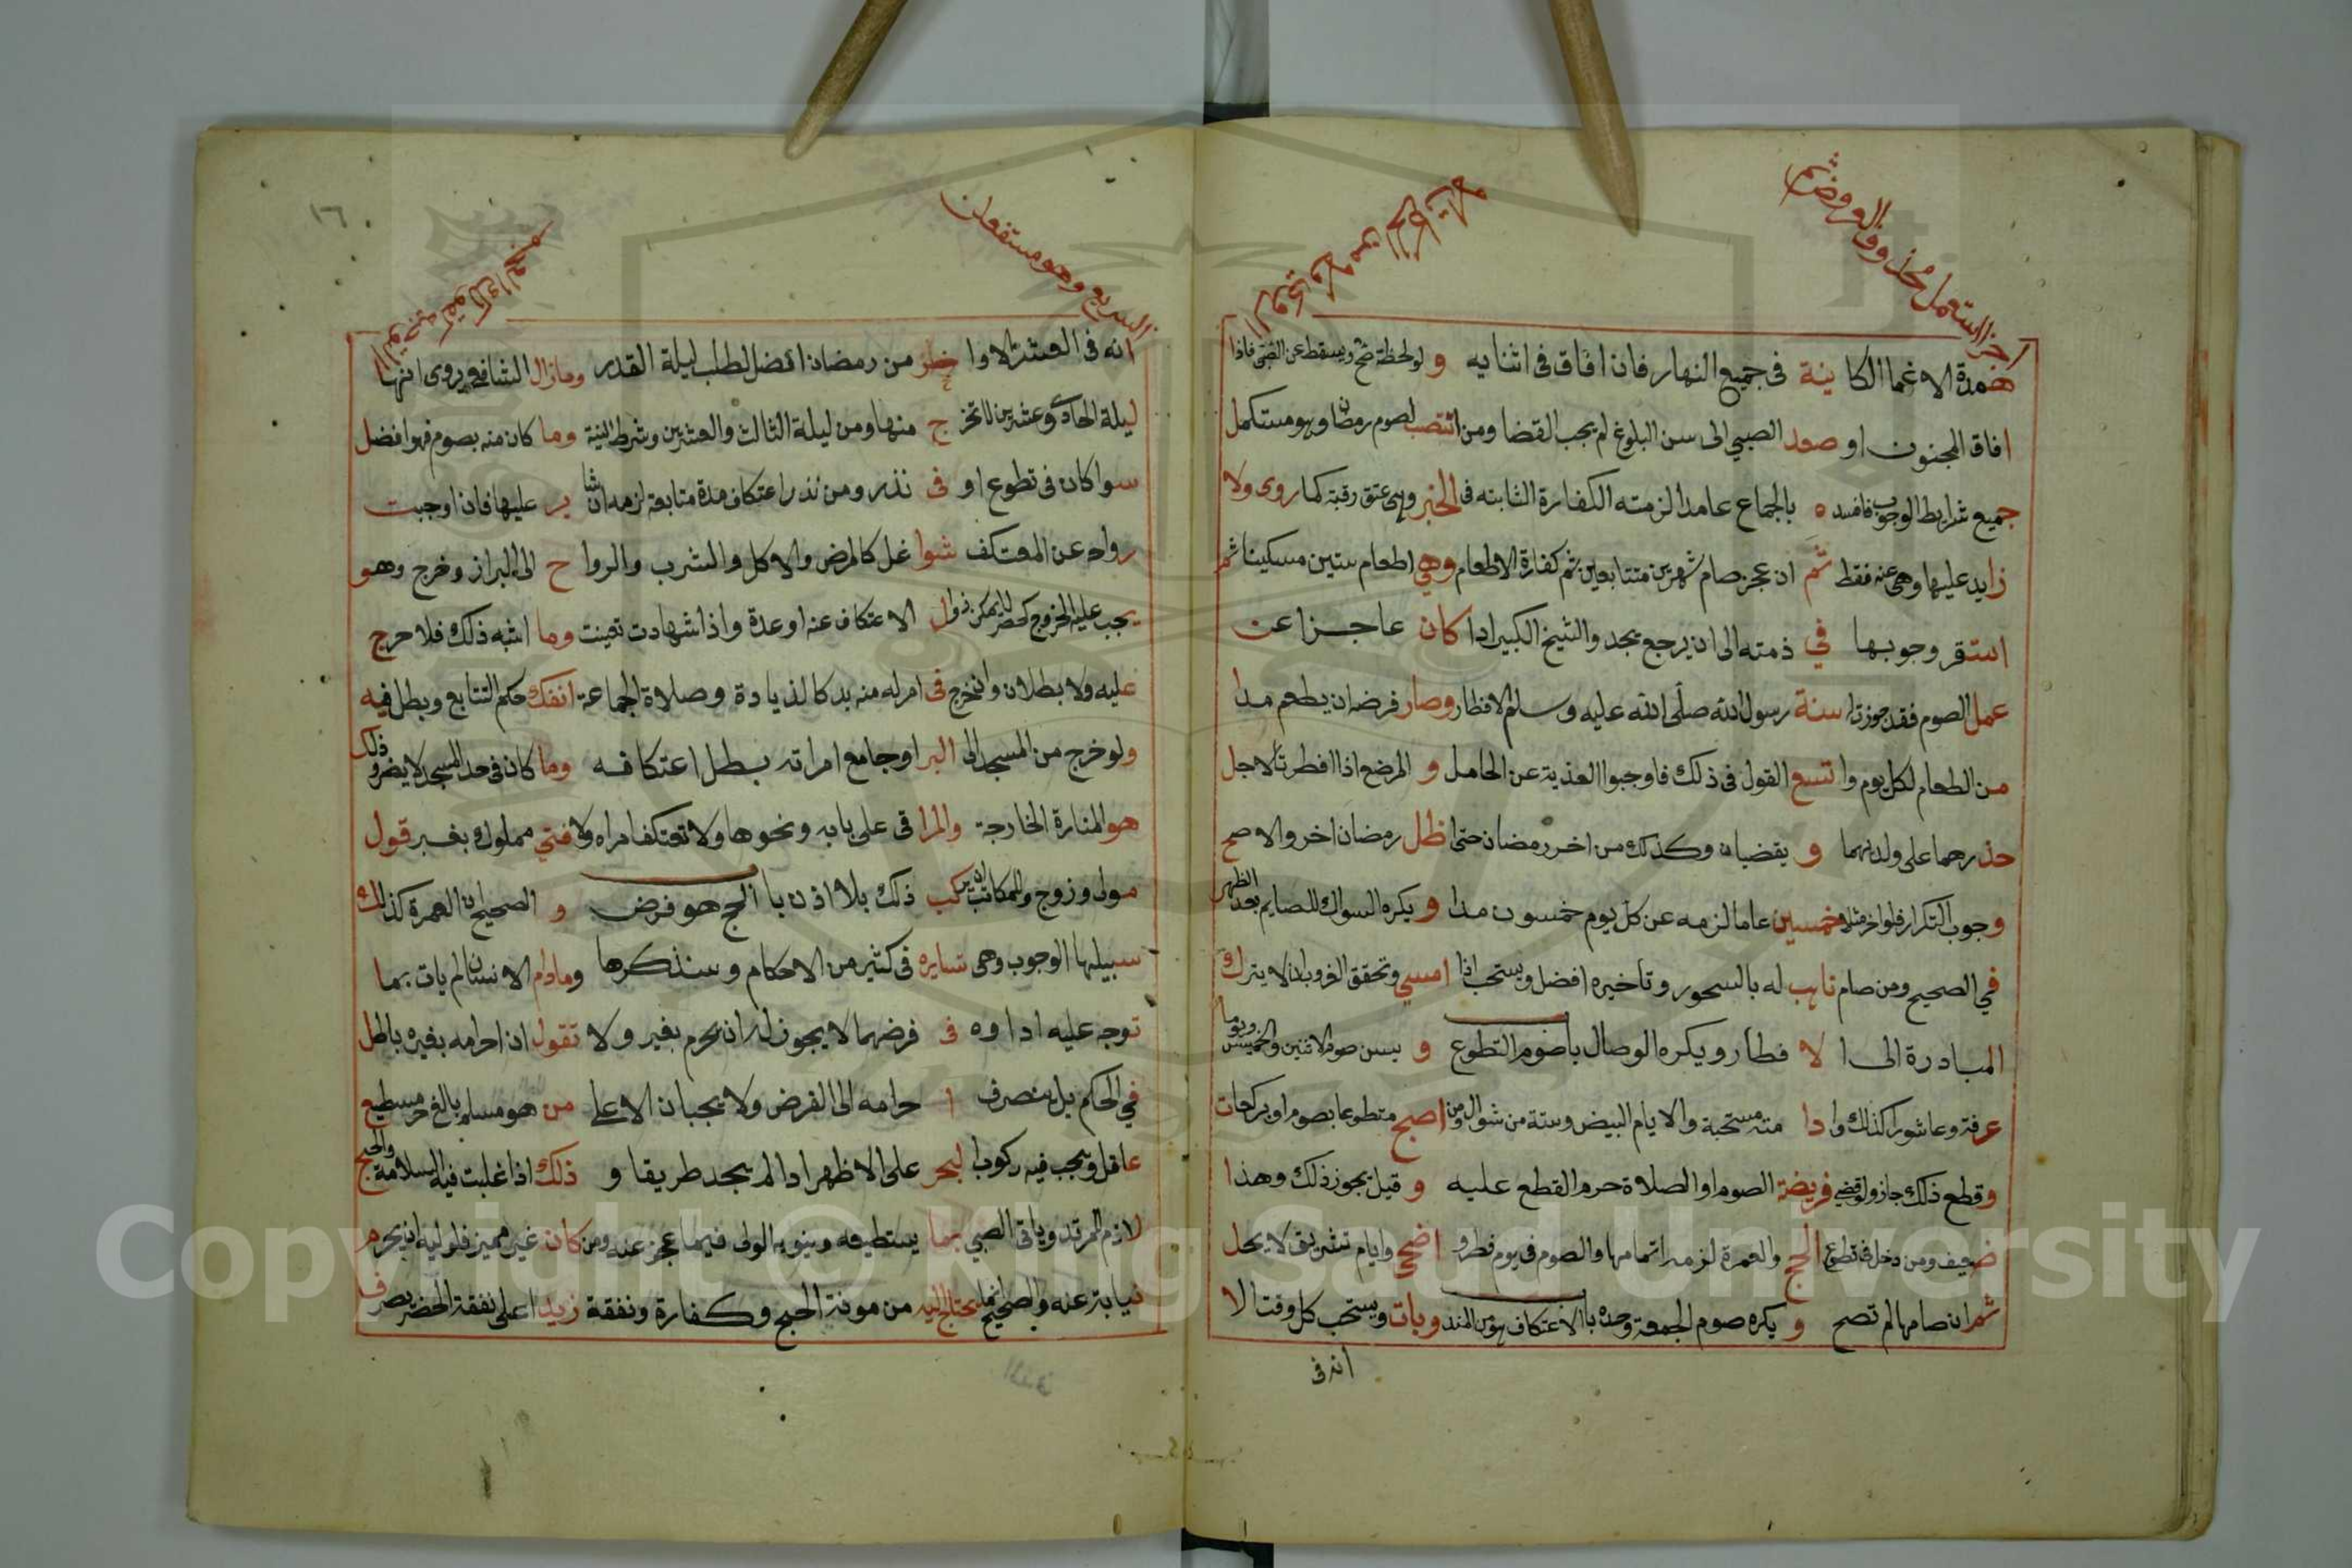 همدة الاغما الكا ينة في جميع النهار فان افاق في اثنايه و لو لحظة صح ويسقط عن الصبي فاذا
افاق المجنون او صعد الصبي الى سن البلوغ لم يجب القضا ومن انتصب لصوم رمضان وهو مستكمل
جميع شرايط الوجوب فافسده بالجماع عامدا لزمته الكفارة الثابته في الخبر وهي عتق رقبة كما روى ولا
زايد عليها وهي عنه فقط ثم ان عجز صام شهرين متتابعين ثم كفارة الاطعام وهي اطعام ستين مسكينا ثم
استقر وجوبها في ذمته الى ان يرجع يجد والشيخ الكبير اذا كان عاجزا عن
عمل الصوم فقد جوزت سنة رسول الله صلى الله عليه وسلم الافطار وصار فرضه ان يطعم مدا
من الطعام لكل يوم واتسع القول في ذلك فاوجبوا الفدية عن الحامل و المرضع اذا افطرتا لاجل
حذرهما على ولديهما و يقضيان وكذلك من اخر رمضان حتى اظل رمضان اخر والاصح
وجوب التكرار فلو اخر مثلا خمسين عاما لزمه عن كل يوم خمسون مدا و يكره السواك للصايم بعد الظهر
في الصحيح ومن صام ناب له بالسحور وتاخيره افضل ويستحب اذا امسي وتحقق الغروب ان لا يترك
المبادرة الى ا لا فطار ويكره الوصال باب صوم التطوع و يسن صوم الاثنين والخميس ويوما
عرفة وعاشورا كذلك واذا مته مستحبة والايام البيض وستة من شوال ومن اصبح متطوعا بصوم او بركعات
وقطع ذلك جاز ولو قضى فريضة الصوم او الصلاة حرم القطع عليه و قيل يجوز ذلك وهذا
ضعيف ومن دخل في تطوع الحج والعمرة لزمه اتمامها والصوم في يوم فطر و اضحى وايام تشريق لا يحل
ثم ان صامها لم تصح و يكره صوم الجمعة وحده باب الاعتكاف وبات ويستحب كل وقت الا
انه في
السريع وهو مستفعلن
١٦
انه في العشر الاوا خر من رمضان افضل لطلب ليلة القدر وما زال الشافعي يروى انها
ليلة الحادي وعشرين لا تخر ج منها ومن ليلة الثالث والعشرين وشرط النية وما كان منه بصوم فهو افضل
سوا كان في تطوع او في نذر ومن نذر اعتكاف مدة متابعة لزمه ان يثابر عليها فان اوجبت
رواح عن المعتكف شوا غل كالمرض والاكل والشرب والروا ح الى البراز وخرج وهو
يجب عليه الخروج زوال الاعتكاف عنه او عدة واذا شهادت تعينت وما اشبه ذلك فلا حرج
عليه ولا بطلان وان خرج في امر له منه بد كالزيادة وصلاة الجماعة انفك حكم التتابع وبطل فيه
ولو خرج من المسجد الى البر او جامع امراته بطل اعتكافه وما كان في حد المسجد لا يضر وذلك
هو المنارة الخارجة والمرا قى على بابه ونحوها ولا تعتكف امراه ولا فتى مملوك بغير قول
مولى وزوج وللمكاتب ان يركب ذلك بلا اذن باب الحج هو فرض و الصحيح ان العمرة كذلك
سبيلها الوجوب وهي تسايره في كثير من الاحكام وسنذكرها وما دام الانسان لم يات بما
توجه عليه اداوه في فرضهما لا يجوز له ان يحرم بغير ولا تقول ان احرامه بغيره باطل
في الحكم بل منصرف ا حرامه الى الفرض ولا يجبان الا على من هو مسلم بالغ حر مستطيع
عاقل ويجب فيه ركوب البحر على الاظهر اذا لم يجد طريقا و ذلك اذا غلبت فيه السلامة والحج
لازم المرتد وياتي الصبي بما يستطيعه وينويه الولى فيما عجز عنه ومن كان غير مميز فلوليه ان يحرم
نيابة عنه والصحيح انما يحتاج اليه من مونة الحج وكفارة ونفقة زيدا على نفقة الحضر يصرف